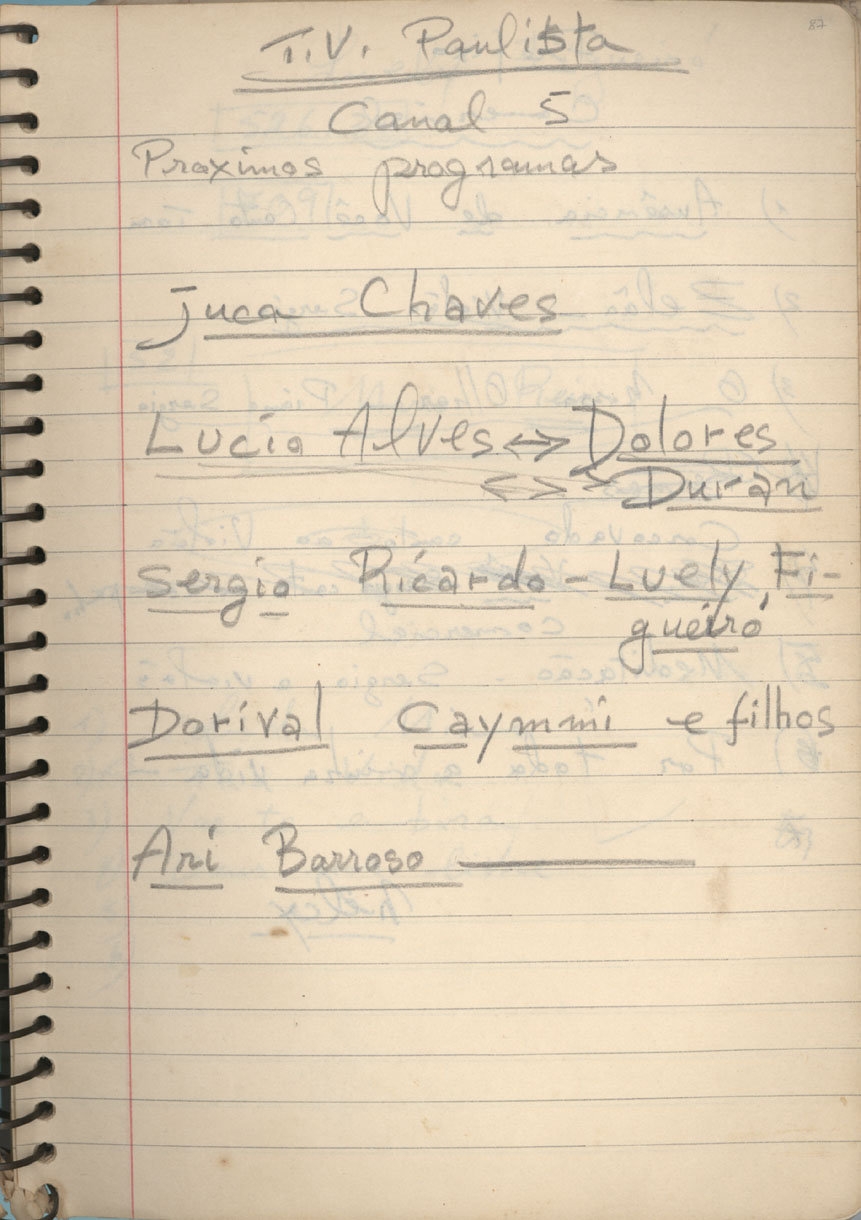 87
T.V. Paulista
Canal 5
Proximos programas
Juca Chaves
Lucio Alves <-> Dolores
<-> Duran
Sergio Ricardo - Luely Fi-
gueiró
Dorival Caymmi e filhos
Ari Barroso